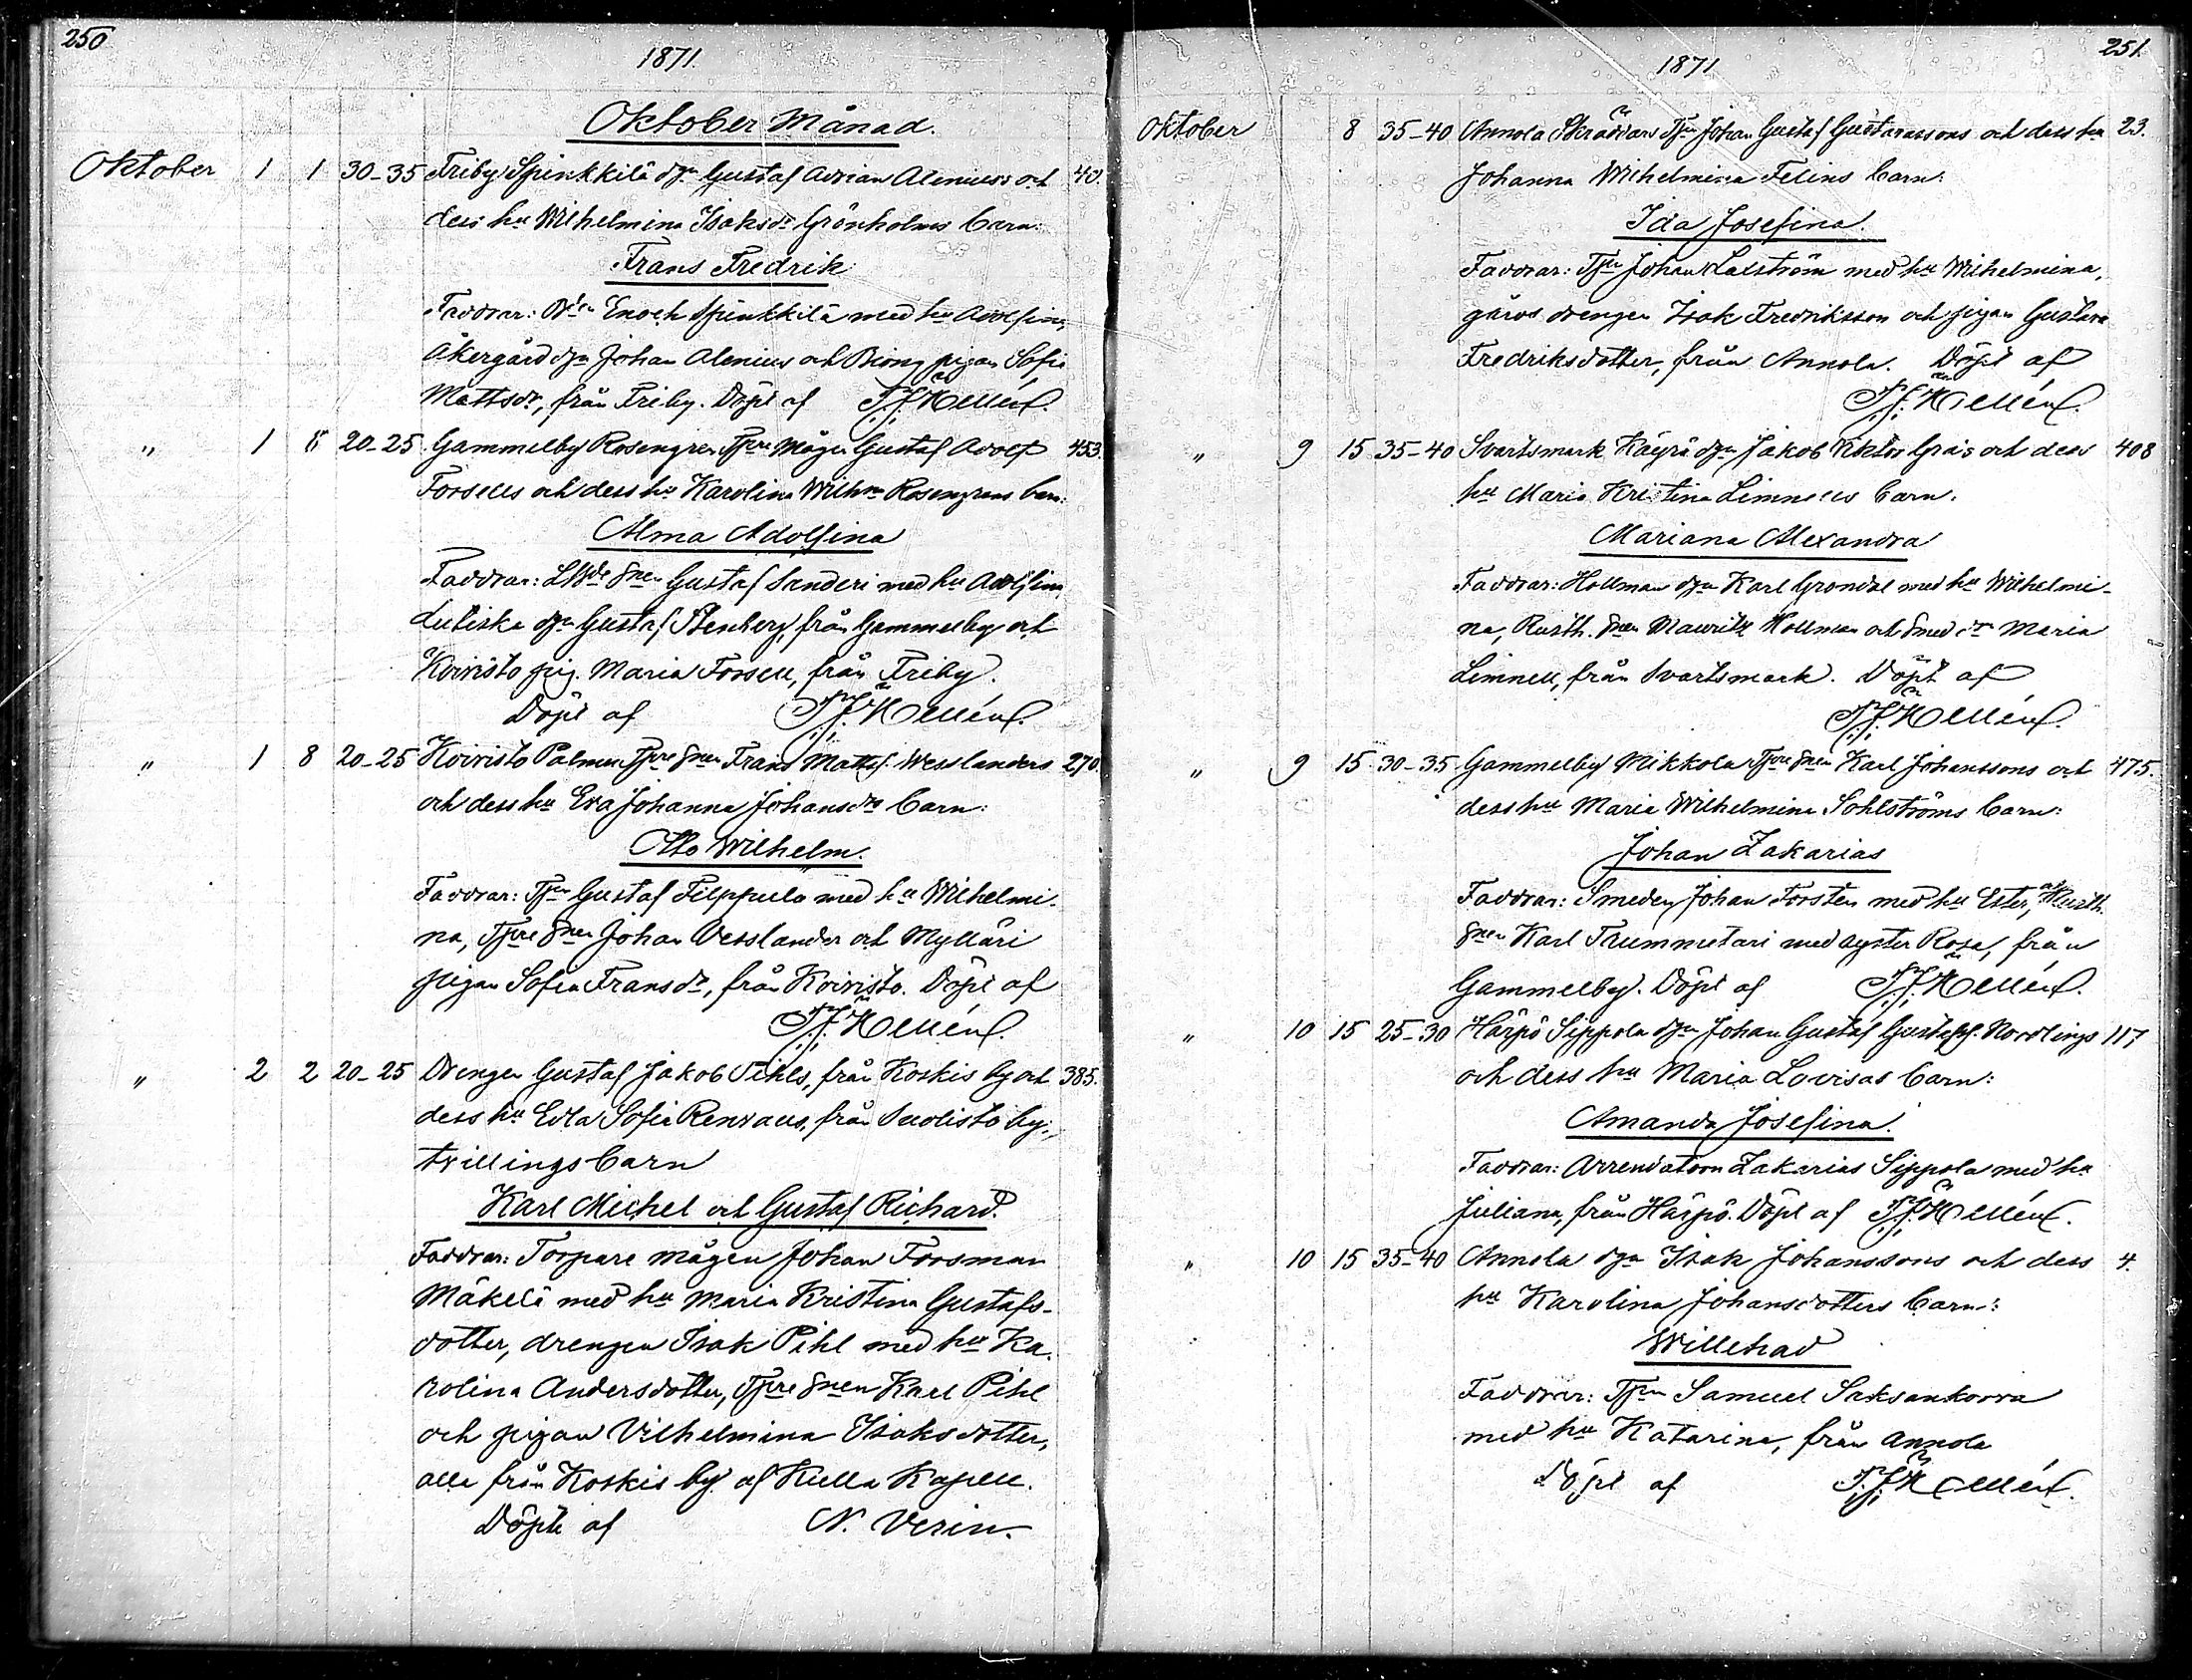 250
1871.
Oktober Månad.
Oktober 1 1 30-35 Friby Spinkkilä dgn Gustaf Adrian Alenius's och 40.
dess hu Wilhelmina Isaksdr Grönholms barn:
Frans Fredrik
Faddrar: Enoch Spinkkilä med hu Adolfina,
Åkergård dgn Johan Alenius och Piong pigan Sofia
Mattsdr, från Friby. Döpt af F. J. Hellén.
" 1 8 20-25 Gammelby Rosengren Tpre Mågen Gustaf Adolf 453.
Forsells och dess hu Karolina Wilhna Rosengrens barn:
Alma Adolfina
Faddrar: Gustaf Sanderi med hu Adolfina
dgn Gustaf Stenberg, från Gammelby och
Koivisto pig. Maria Forsell, från Friby.
Döpt af F. J. Hellén.
" 1 8 20-25 Koivisto Palmun Tpre Snen Frans Mattsf. Wesslanders 270.
och dess hu Eva Johanna Johansdrs barn:
Otto Wilhelm.
Faddrar: Tpn Gustaf Filppula med hu Wilhelmi-
na, Tpre Snen Johan Vesslander och Mylläri
pigan Sofia Fransdr, från Koivisto. Döpt af
F. J. Hellén.
" 2 2 20-25 Drengen Gustaf Jakob Pihls, från Koskis by och 385.
dess hu Edla Sofia Renvalls, från Suolisto by,
tvillingsbarn
Karl Michel och Gustaf Richard.
Faddrar: Torpare mågen Johan Forsman
Mäkelä med hu Maria Kristina Gustafs-
dotter, drengen Isak Pihl med hu Ka-
rolina Andersdotter, Tpre Snen Karl Pihl
och pigan Vilhelmina Isaksdotter,
alla från Koskis by af Kulla Kapell.
Döpte af N. Verin.
251.
1871
Oktober 8 35-40 Annola Skräddars Tpn Johan Gustaf Gustavassons och dess hu 23.
Johanna Wilhelmina Felins barn:
Ida Josefina.
Faddrar: Tpn Johan Latström med hu Wilhelmina,
gårds drengen Isak Fredriksson och pigan Gustava
Fredriksdotter, från Annola. Döpt af
F. J. Hellén.
" 9 15 35-40 Svartsmark Käyrä dgn Jakob Viktor Gräs och dess 408
hu Maria Kristina Limnells barn.
Mariana Alexandra
Faddrar: Hollman dgn Karl Grondal med hu Wilhelmi-
na, Rusth. Snen Mauritz Hollman och Smed dr Maria
Limnell, från Svartsmark. Döpt af
F. J. Hellén.
" 9 15 30-35 Gammelby Mikkola Tpre Snen Karl Johanssons och 475.
dess hu Maria Wilhelmina Sohlströms barn:
Johan Zakarias
Faddrar: Smeden Johan Forsten med hu Ester, Rusth.
Snen Karl Trummetari med syster Rosa, från
Gammelby. Döpt af F. J. Hellén.
" 10 15 25-30 Härpö Sippola dgn Johan Gustaf Gustafsf. Nordlings 117
och dess hu Maria Lovisas barn:
Amanda Josefina.
Faddrar: Arrendatorn Zakarias Sippola med hu
Juliana, från Härpö. Döpt af F. J. Hellén.
" 10 15 35-40 Annola dgn Isak Johanssons och dess 4.
hu Karolina Johansdotters barn:
Willehad
Faddrar: Tpn Samuel Saksankorva
med hu Katarina, från Annola
Döpt af F. J. Hellén.